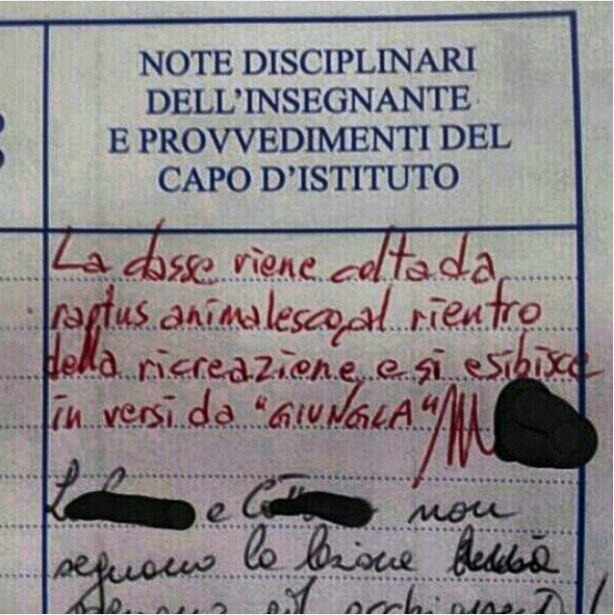 NOTE DISCIPLINARI
DELL'INSEGNANTE
E PROVVEDIMENTI DEL
CAPO D'ISTITUTO
La classe viene colta da
raptus animalesco, al rientro
della ricreazione, e si esibisce
in versi da "GIUNGLA"
e non
seguono la lezione